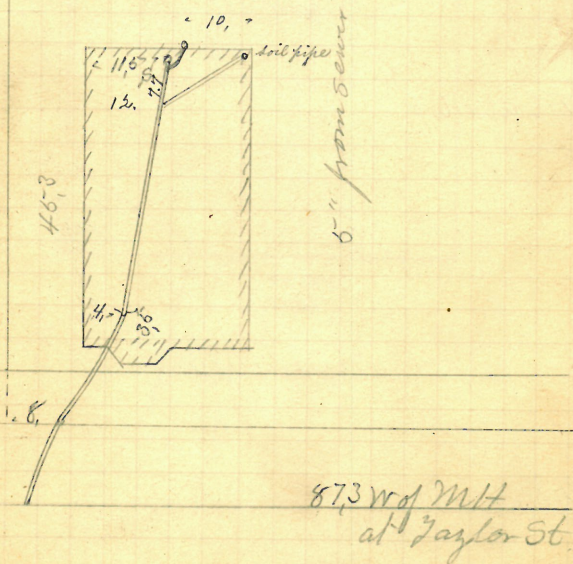 10,
soil pipe
11,5
7.7
12.
5" from sewer
45,3
4,
3,5
8,
87,3 W of MH
at Taylor St